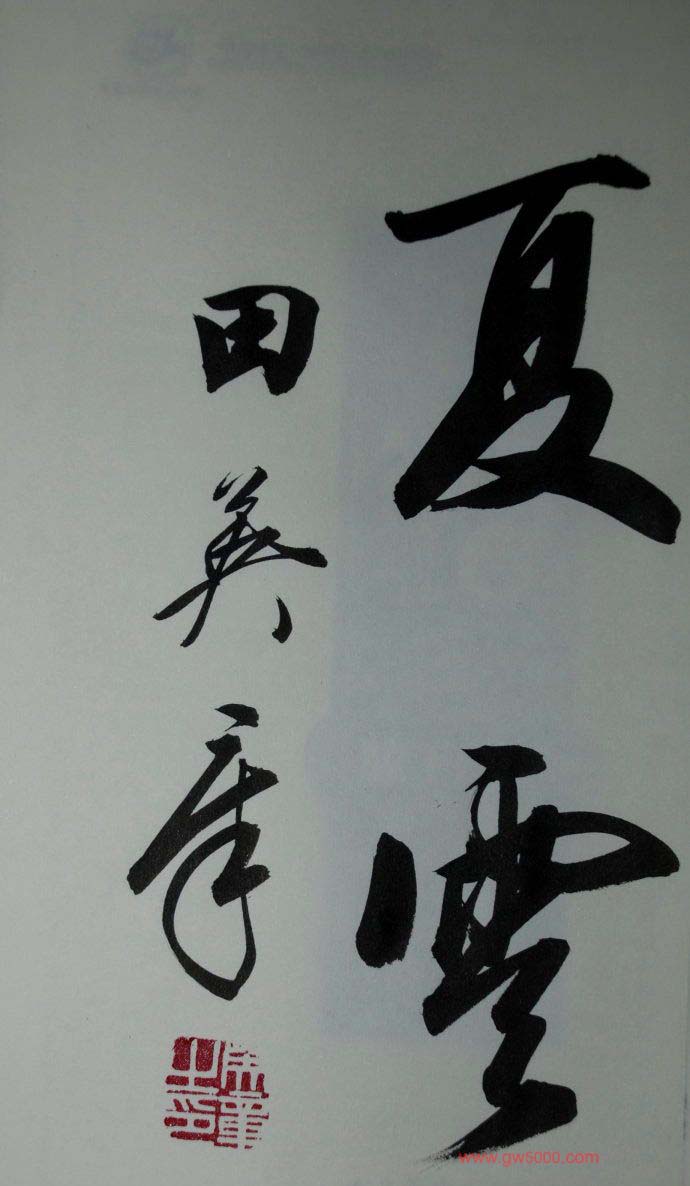 夏雲
田英章
www.gw5000.com